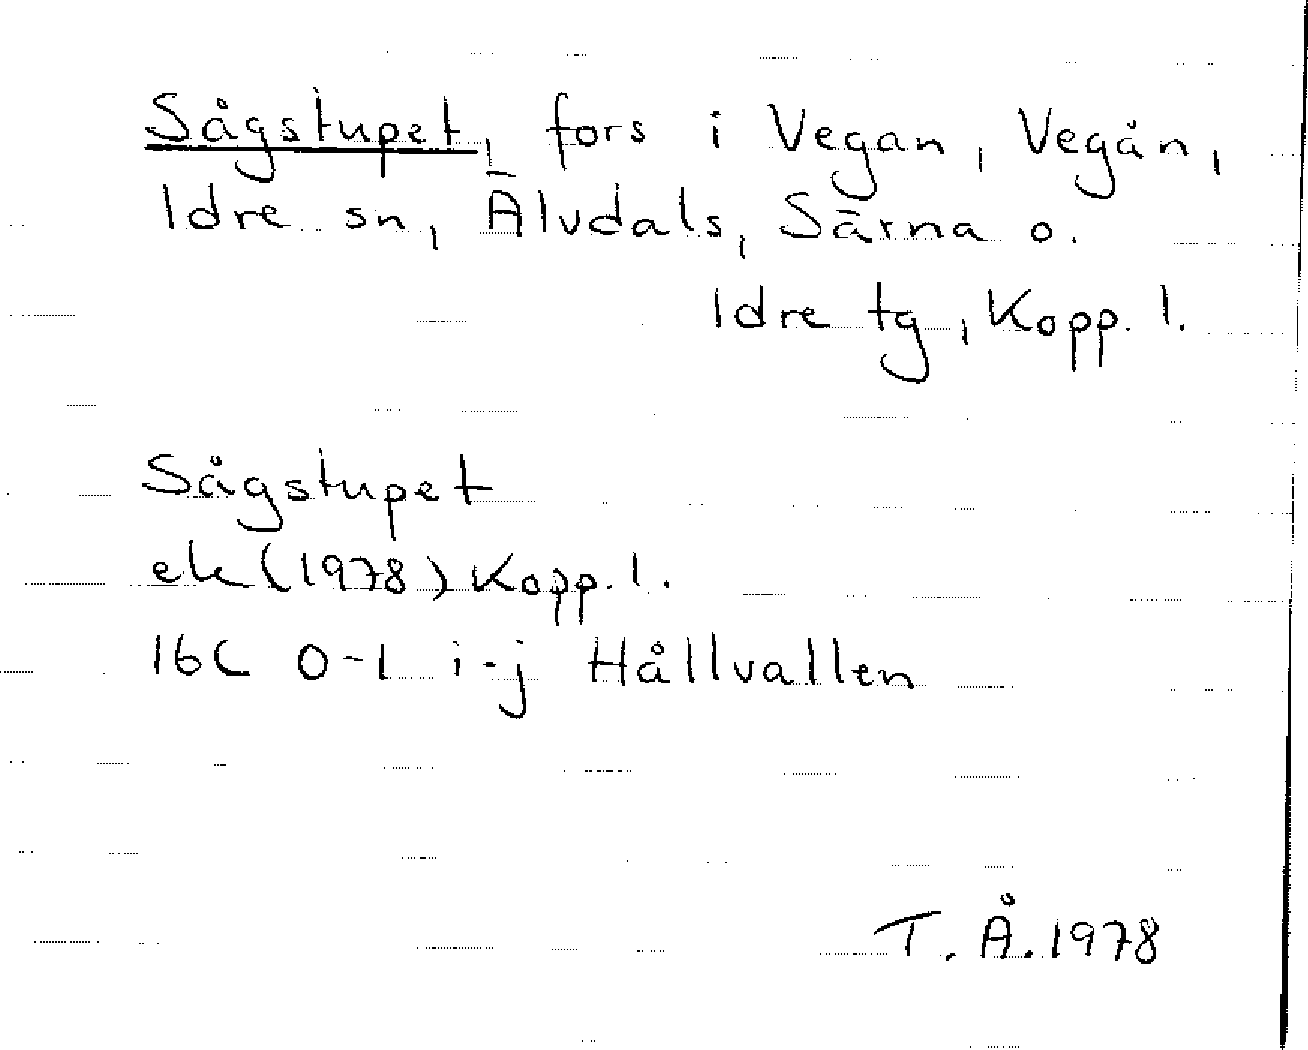 Sågstupet, fors i Vegan, Vegån,
Idre sn, Älvdals, Särna o.
Idre tg, Kopp. l.
Sågstupet
ek (1978) Kopp. l.
16C 0-1 i-j Hållvallen
T. Å. 1978